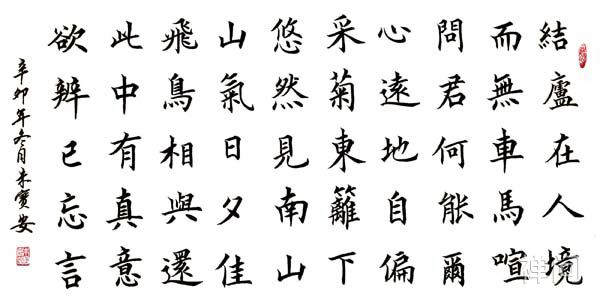 結廬在人境
而無車馬喧
問君何能爾
心遠地自偏
采菊東籬下
悠然見南山
山氣日夕佳
飛鳥相與還
此中有真意
欲辨已忘言
辛卯年冬月朱寶安